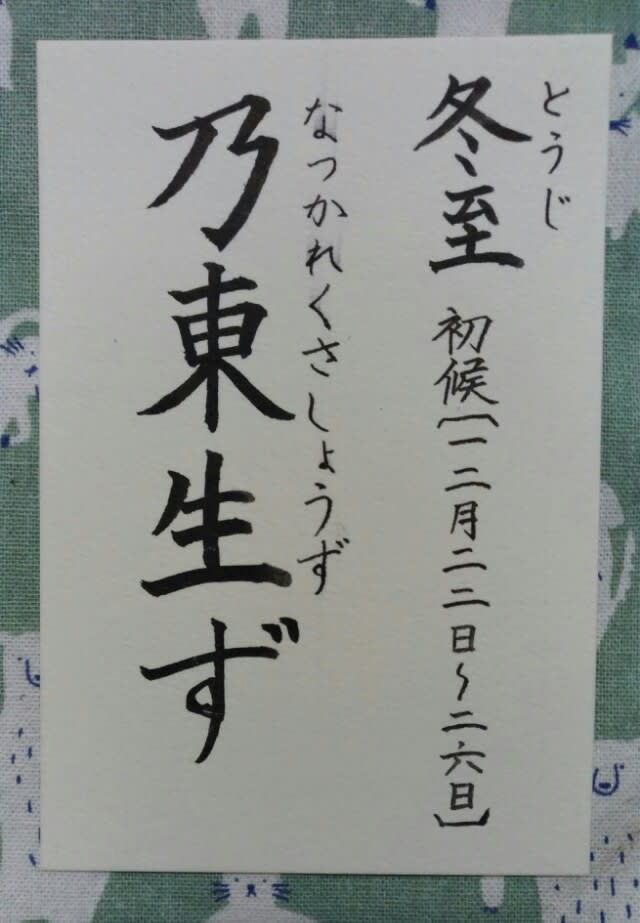 とうじ
冬至 初候〔一二月二二日～二六日〕
なつかれくさしょうず
乃東生ず